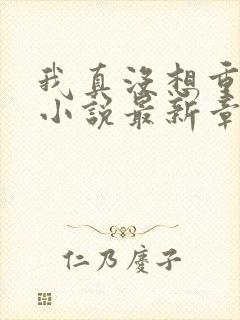 我真没想重
小说最新章
仁乃慶子